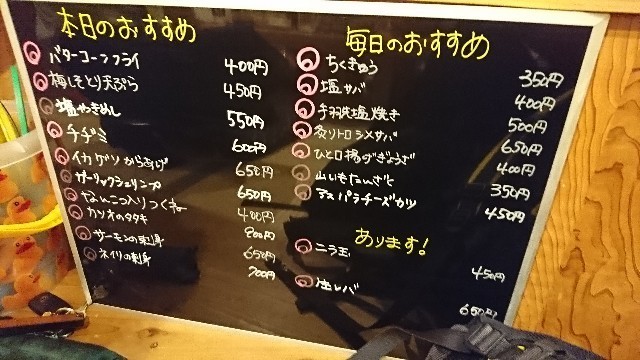 本日のおすすめ
バターコーンフライ 400円
梅しそとり天ぷら 450円
塩やきめし 550円
チヂミ 600円
イカゲソからあげ 650円
ガーリックシュリンプ 650円
なんこつ入りつくね 400円
カツオのタタキ 800円
サーモンの刺身 650円
ネイリの刺身 700円
毎日のおすすめ
ちくきゅう 350円
塩サバ 400円
手羽先塩焼き 500円
炙りトロシメサバ 650円
ひと口揚げぎょうざ 400円
山いもたんざく 350円
アスパラチーズカツ 450円
あります!
ニラ玉 450円
生レバ 650円